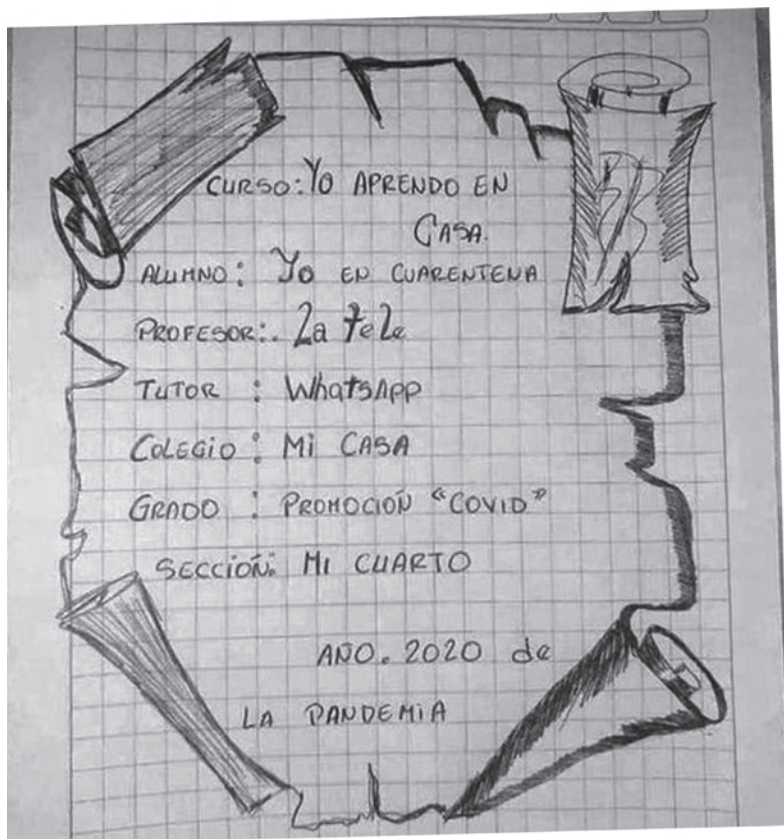 CURSO: Yo APRENDO EN
CASA.
ALUMNO: Yo EN CUARENTENA
PROFESOR:. La teLe
TUTOR : WhatsApp
COLEGIO : Mi CASA
GRADO : PROMOCIÓN "COVID"
SECCIÓN: MI CUARTO
AÑO. 2020 de
LA PANDEMIA